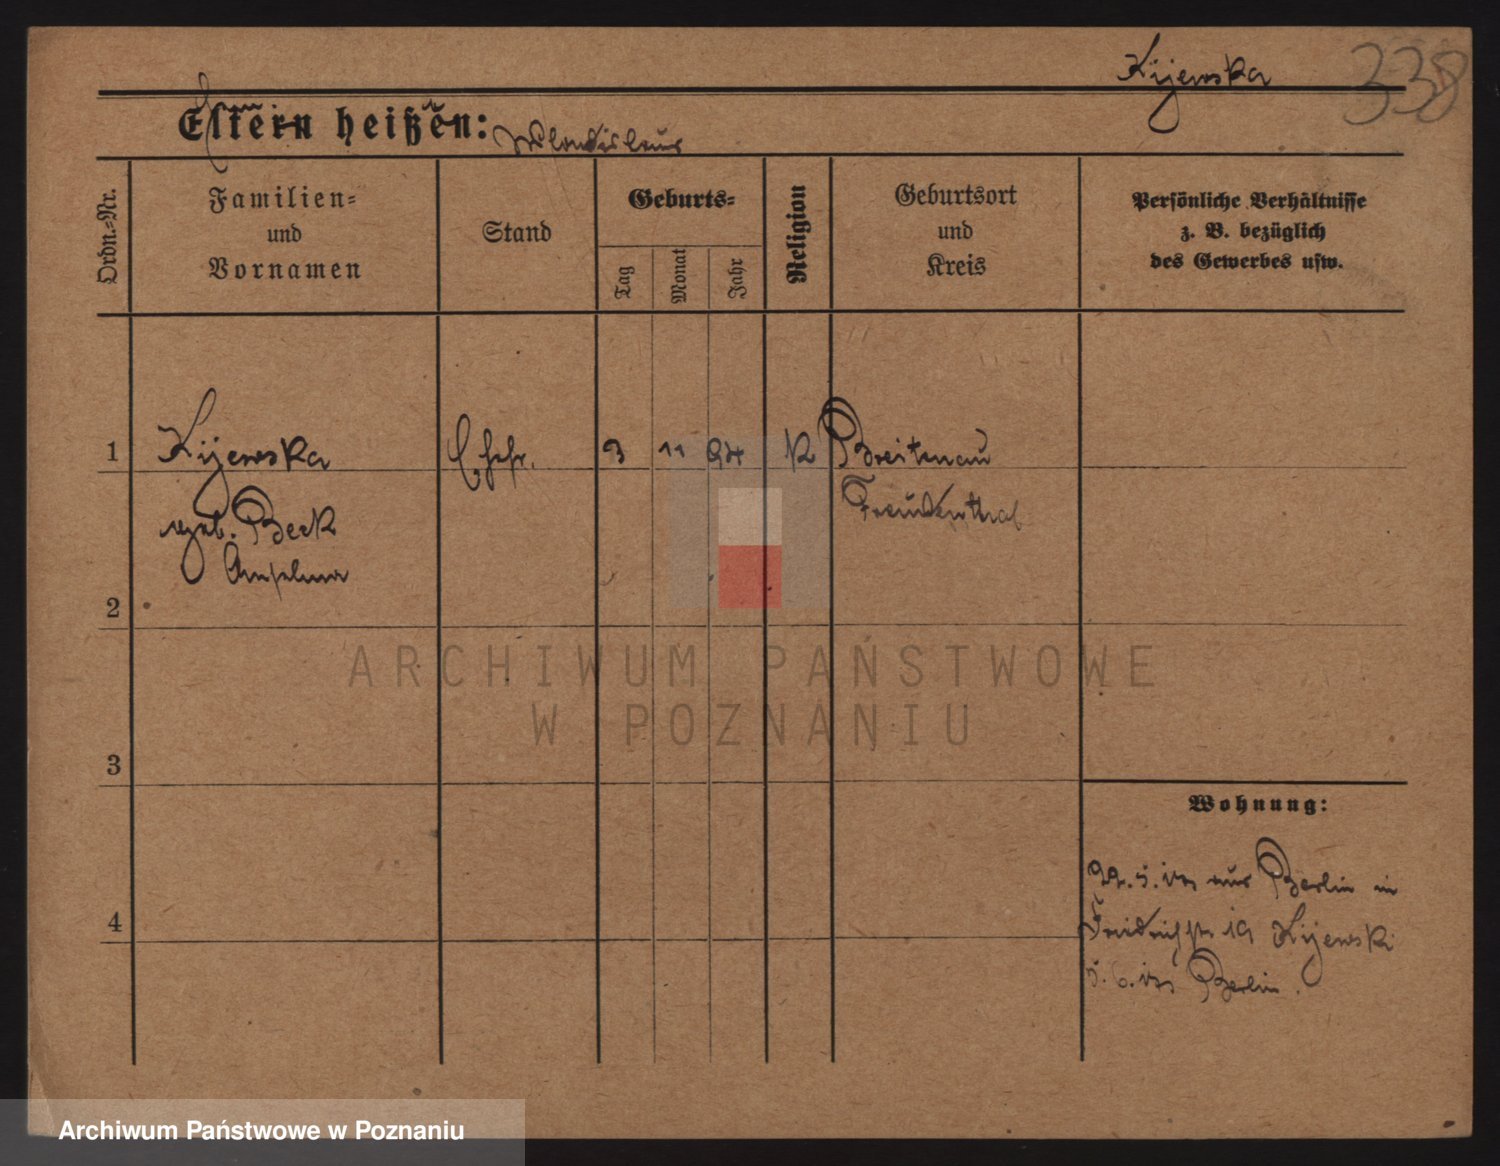 Kijewska
338
Eltern heißen: Wladislaus
Ordn.-Nr.
Familien-
und
Vornamen
Stand
Geburts-
Tag
Monat
Jahr
Religion
Geburtsort
und
Kreis
Persönliche Verhältnisse
z. B. bezüglich
des Gewerbes usw.
1
Kijewska
Ehefr.
3
11
84
K
Breitenau
geb. Beck
Freudenthal
Anselma
2
ARCHIWUM PAŃSTWOWE
W POZNANIU
3
Wohnung:
22. 5. aus Berlin in
4
Friedrichstr. 19 Kijewski
5. 6. Berlin.
Archiwum Państwowe w Poznaniu